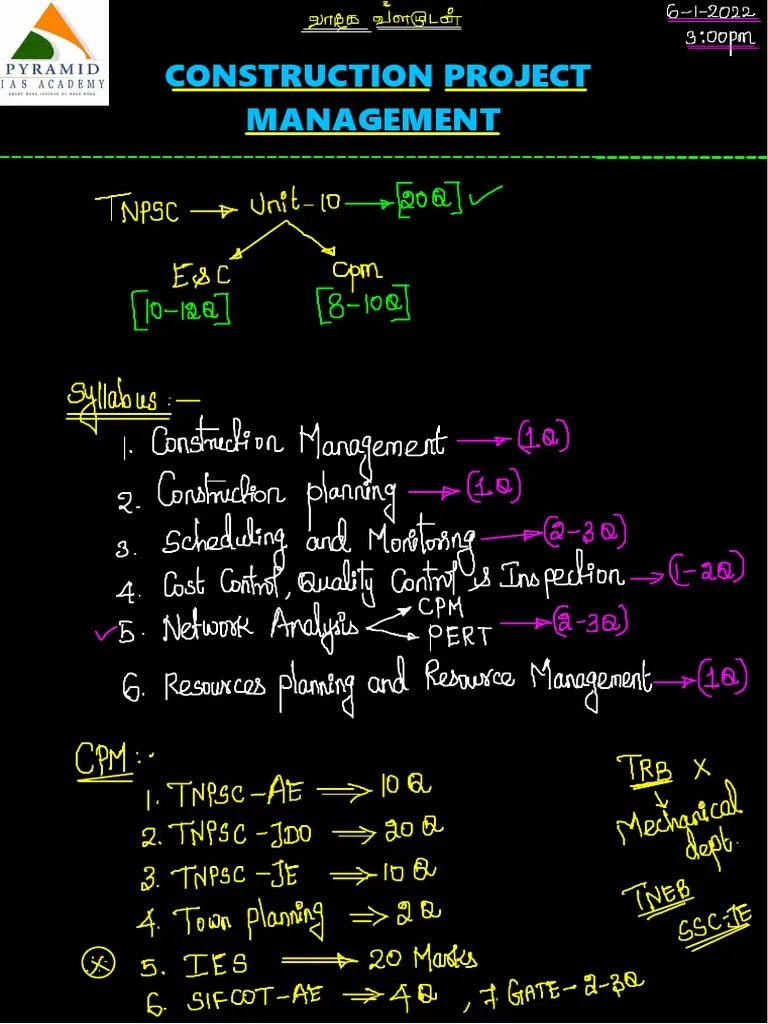 வாழ்க வளமுடன்
6-1-2022
3:00pm
PYRAMID
IAS ACADEMY
CONSTRUCTION PROJECT
MANAGEMENT
TNPSC → Unit-10 → [20Q] ✓
E&C CPM
[10-12Q] [8-10Q]
Syllabus:-
1. Construction Management → (1Q)
2. Construction planning → (1Q)
3. Scheduling and Monitoring → (2-3Q)
4. Cost Control, Quality Control & Inspection → (1-2Q)
✓ 5. Network Analysis CPM PERT → (2-3Q)
6. Resources planning and Resource Management → (1Q)
CPM:-
1. TNPSC-AE ⇒ 10Q
2. TNPSC-JDO ⇒ 20Q
3. TNPSC-JE ⇒ 10Q
4. Town planning ⇒ 2Q
5. IES ⇒ 20 Marks
6. SIFCOT-AE ⇒ 4Q, 7 GATE-2-3Q
TRB X
↓
Mechanical
dept.
TNEB
SSC-JE